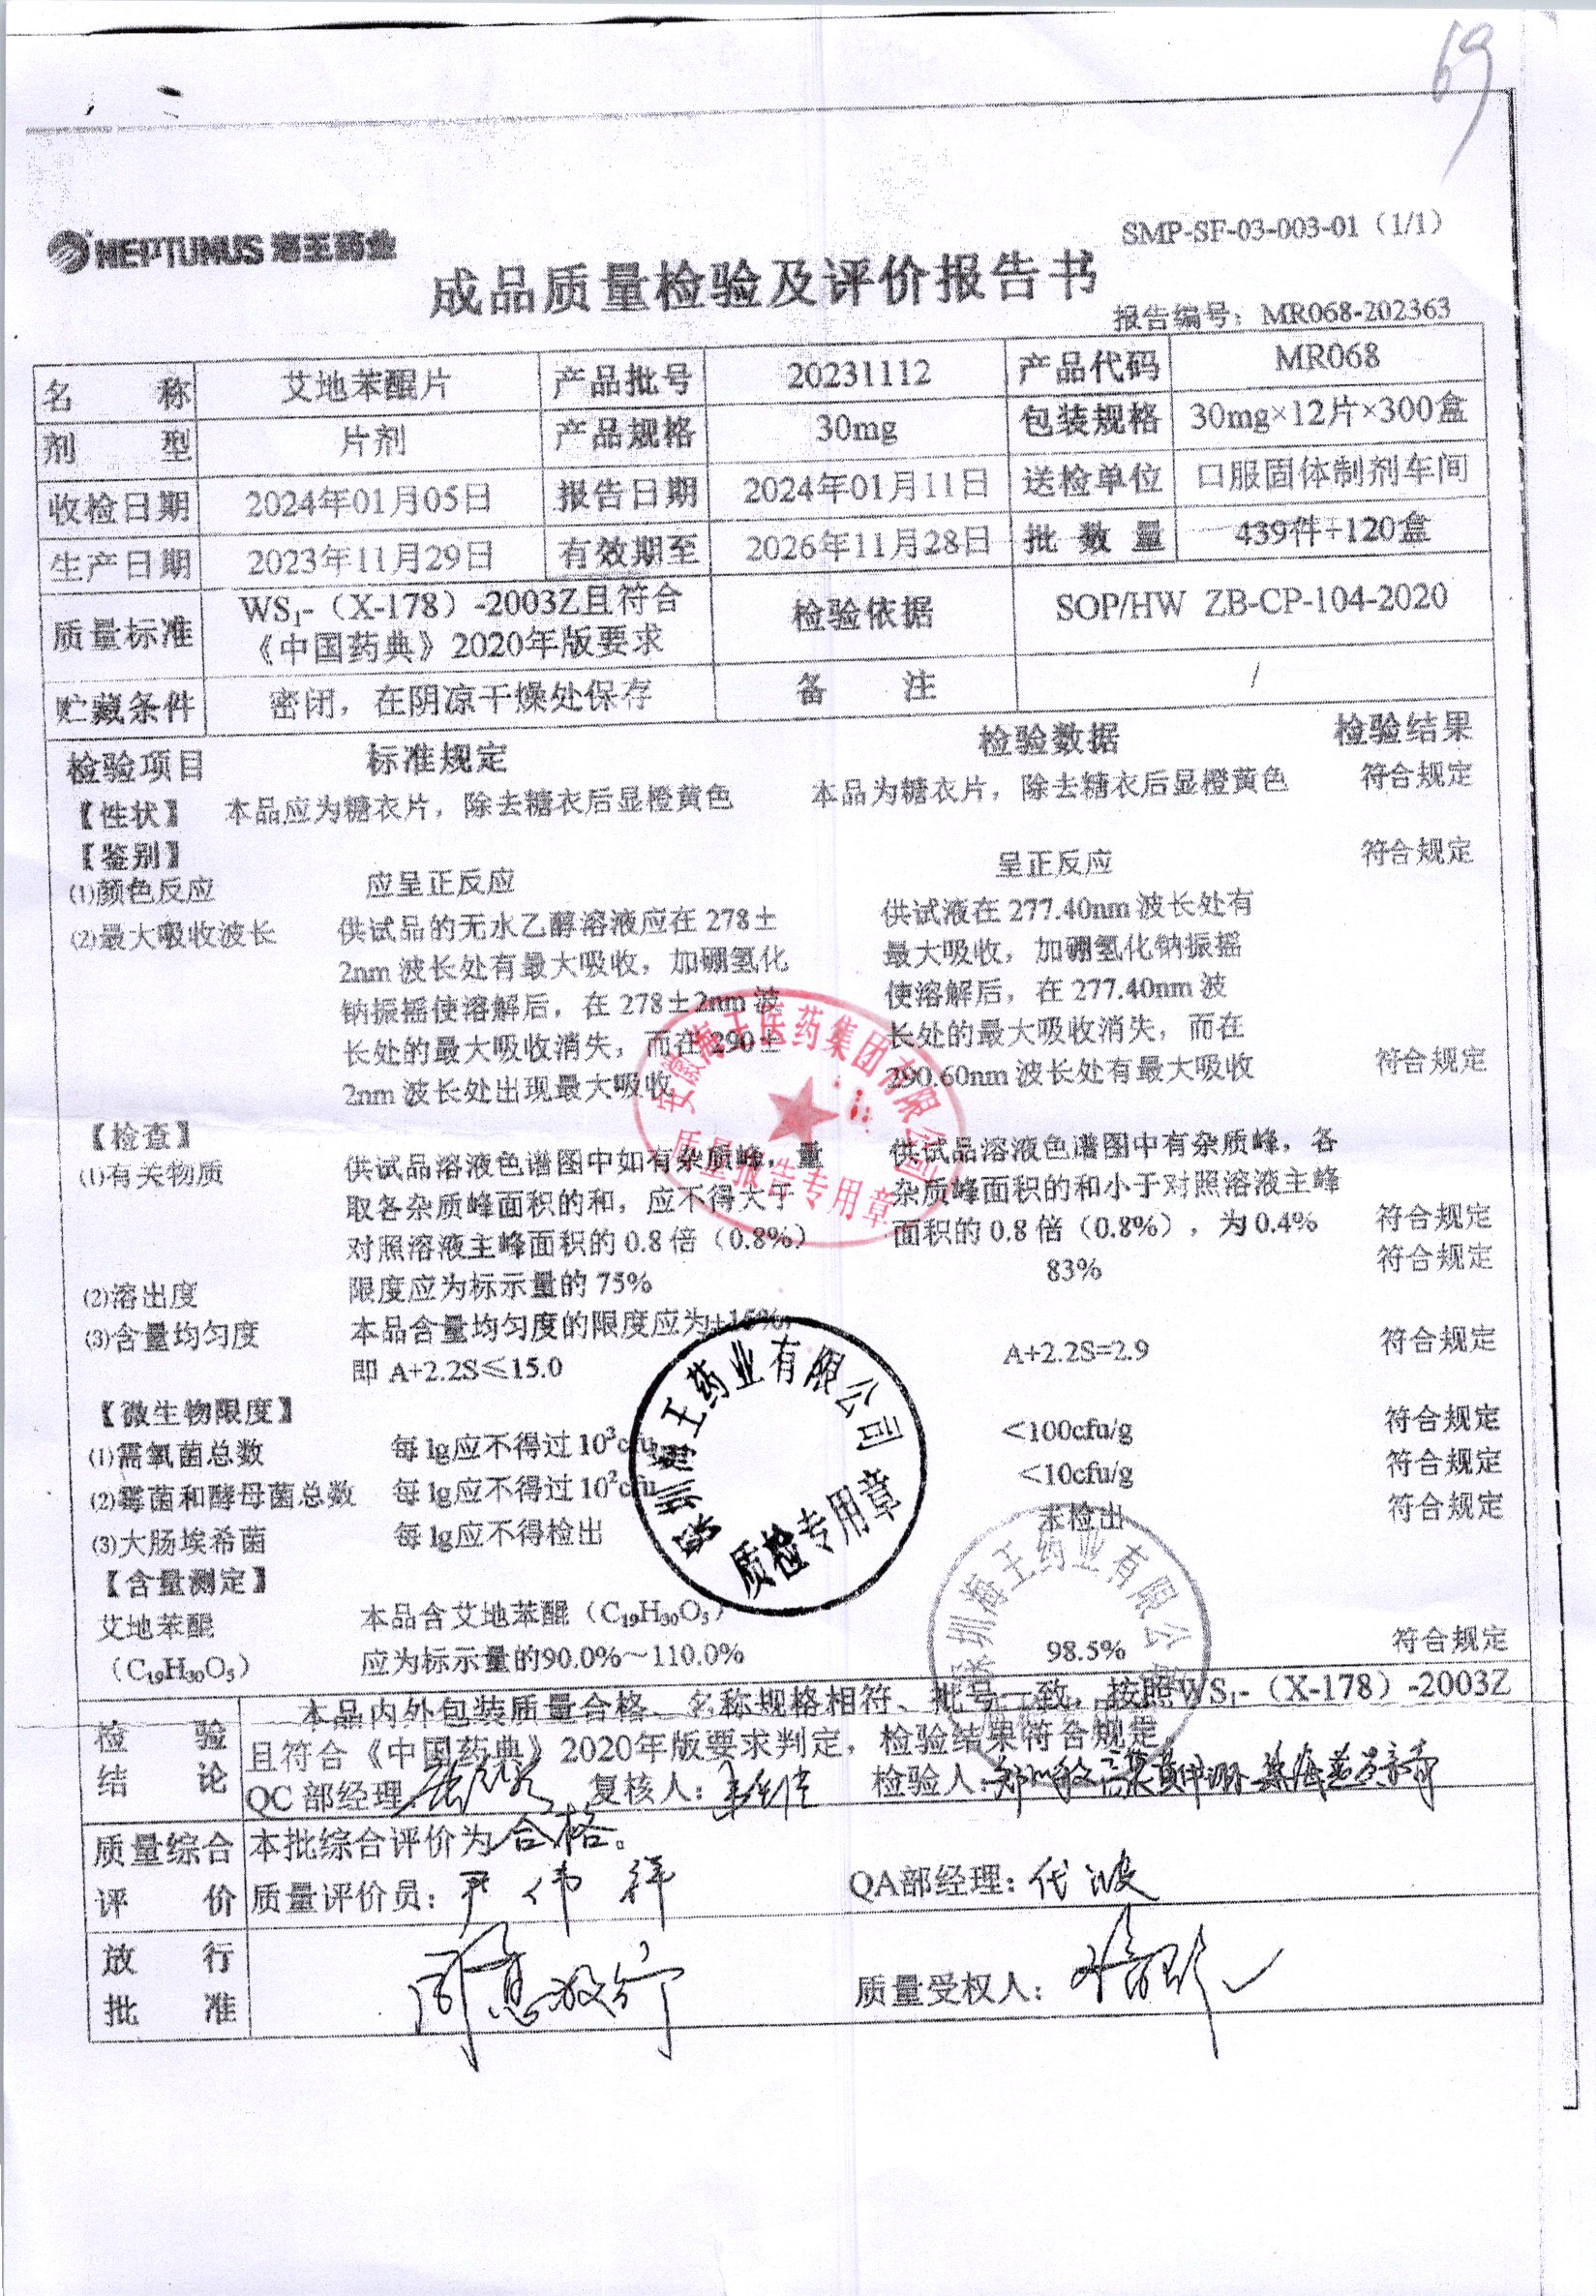 69
NEPTUNUS 海王药业
SMP-SF-03-003-01（1/1）
成品质量检验及评价报告书
报告编号：MR068-202363
名 称 艾地苯醌片 产品批号 20231112 产品代码 MR068
剂 型 片剂 产品规格 30mg 包装规格 30mg×12片×300盒
收检日期 2024年01月05日 报告日期 2024年01月11日 送检单位 口服固体制剂车间
生产日期 2023年11月29日 有效期至 2026年11月28日 批 数 量 439件+120盒
质量标准 WS₁-（X-178）-2003Z且符合《中国药典》2020年版要求 检验依据 SOP/HW ZB-CP-104-2020
贮藏条件 密闭，在阴凉干燥处保存 备 注 /
检验项目 标准规定 检验数据 检验结果
【性状】 本品应为糖衣片，除去糖衣后显橙黄色 本品为糖衣片，除去糖衣后显橙黄色 符合规定
【鉴别】
⑴颜色反应 应呈正反应 呈正反应 符合规定
⑵最大吸收波长 供试品的无水乙醇溶液应在 278± 供试液在 277.40nm 波长处有
2nm 波长处有最大吸收，加硼氢化 最大吸收，加硼氢化钠振摇
钠振摇使溶解后，在 278±2nm 波 使溶解后，在 277.40nm 波
长处的最大吸收消失，而在 290± 长处的最大吸收消失，而在
2nm 波长处出现最大吸收 290.60nm 波长处有最大吸收 符合规定
【检查】
⑴有关物质 供试品溶液色谱图中如有杂质峰，量 供试品溶液色谱图中有杂质峰，各
取各杂质峰面积的和，应不得大于 杂质峰面积的和小于对照溶液主峰
对照溶液主峰面积的 0.8 倍（0.8%） 面积的 0.8 倍（0.8%），为 0.4% 符合规定
⑵溶出度 限度应为标示量的 75% 83% 符合规定
⑶含量均匀度 本品含量均匀度的限度应为±15%，
即 A+2.2S≤15.0 A+2.2S=2.9 符合规定
【微生物限度】
⑴需氧菌总数 每 1g应不得过 10³cfu <100cfu/g 符合规定
⑵霉菌和酵母菌总数 每 1g应不得过 10²cfu <10cfu/g 符合规定
⑶大肠埃希菌 每 1g应不得检出 未检出 符合规定
【含量测定】
艾地苯醌 本品含艾地苯醌（C₁₉H₃₀O₅）
（C₁₉H₃₀O₅） 应为标示量的90.0%～110.0% 98.5% 符合规定
安徽海王医药集团有限公司
质量报告专用章
深圳海王药业有限公司
质检专用章
深圳海王药业有限公司
检 验 结 论 本品内外包装质量合格、名称规格相符、批号一致，按照WS₁-（X-178）-2003Z
且符合《中国药典》2020年版要求判定，检验结果符合规定
QC 部经理： 复核人： 检验人：
质量综合 本批综合评价为 合格。
评 价 质量评价员：严伟祥 QA部经理：代波
放 行
批 准 质量受权人：